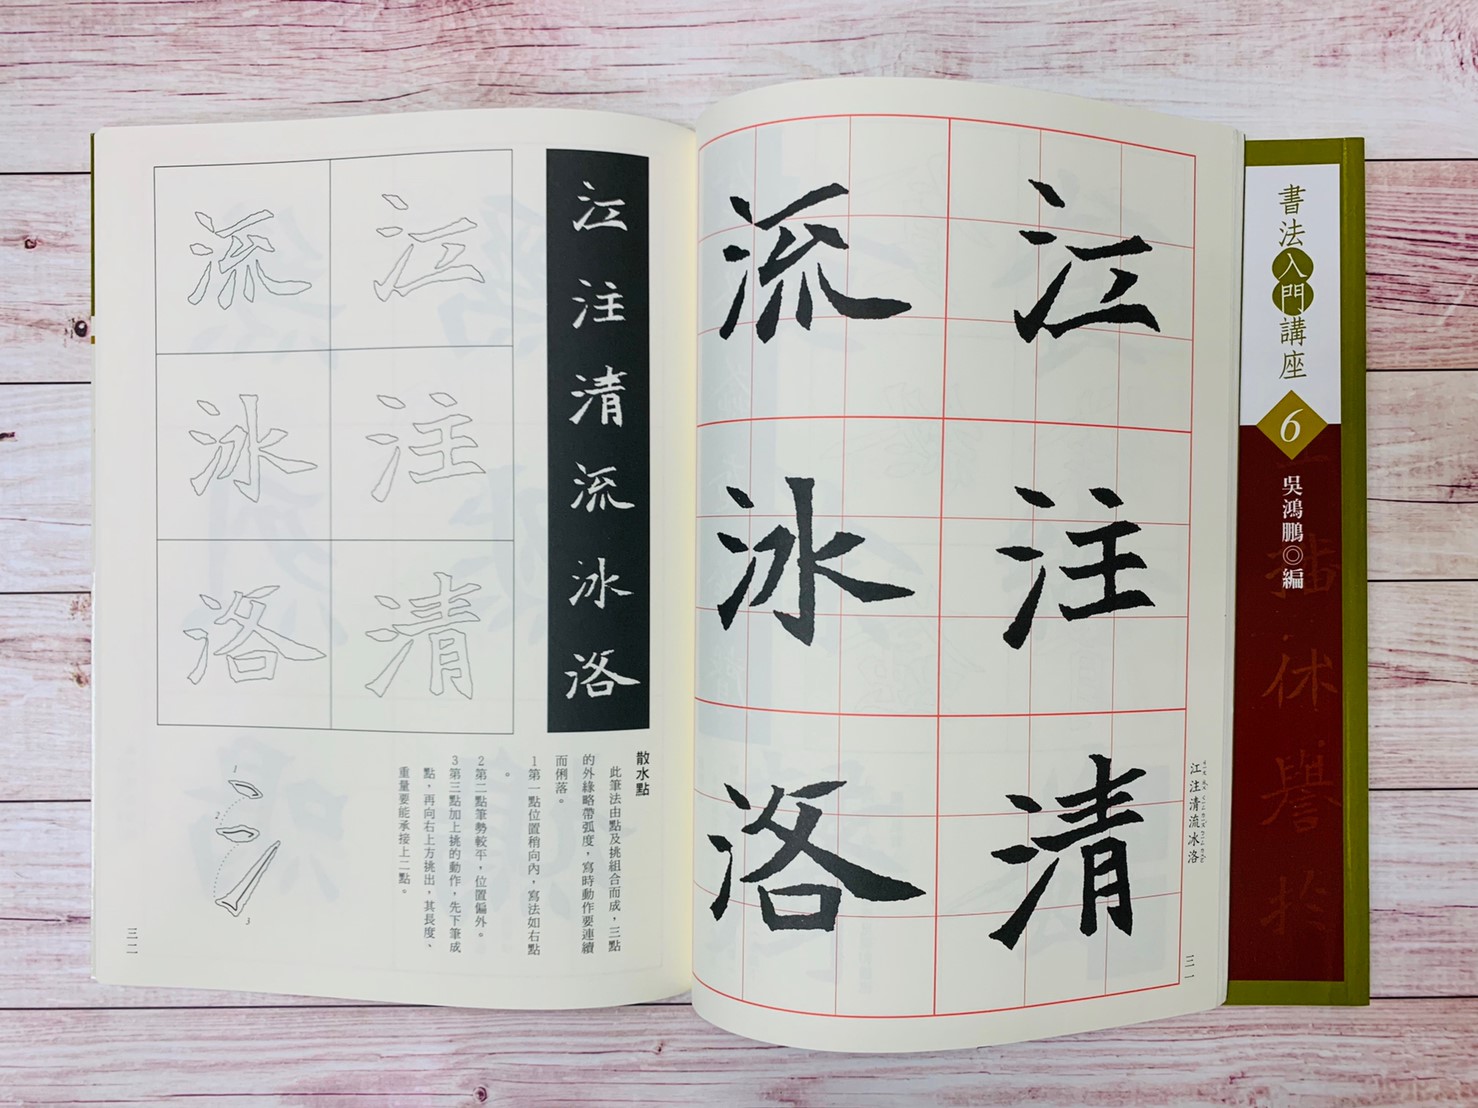 書法入門講座
6
吳鴻鵬◎編
江注清
流冰洛
江注清流冰洛
三一
江注清流冰洛
江注清
流冰洛
散水點
此筆法由點及挑組合而成，三點
的外緣略帶弧度，寫時動作要連續
而俐落。
1第一點位置稍向內，寫法如右點
。
2第二點筆勢較平，位置偏外。
3第三點加上挑的動作，先下筆成
點，再向右上方挑出，其長度、
重量要能承接上二點。
1
2
3
三二